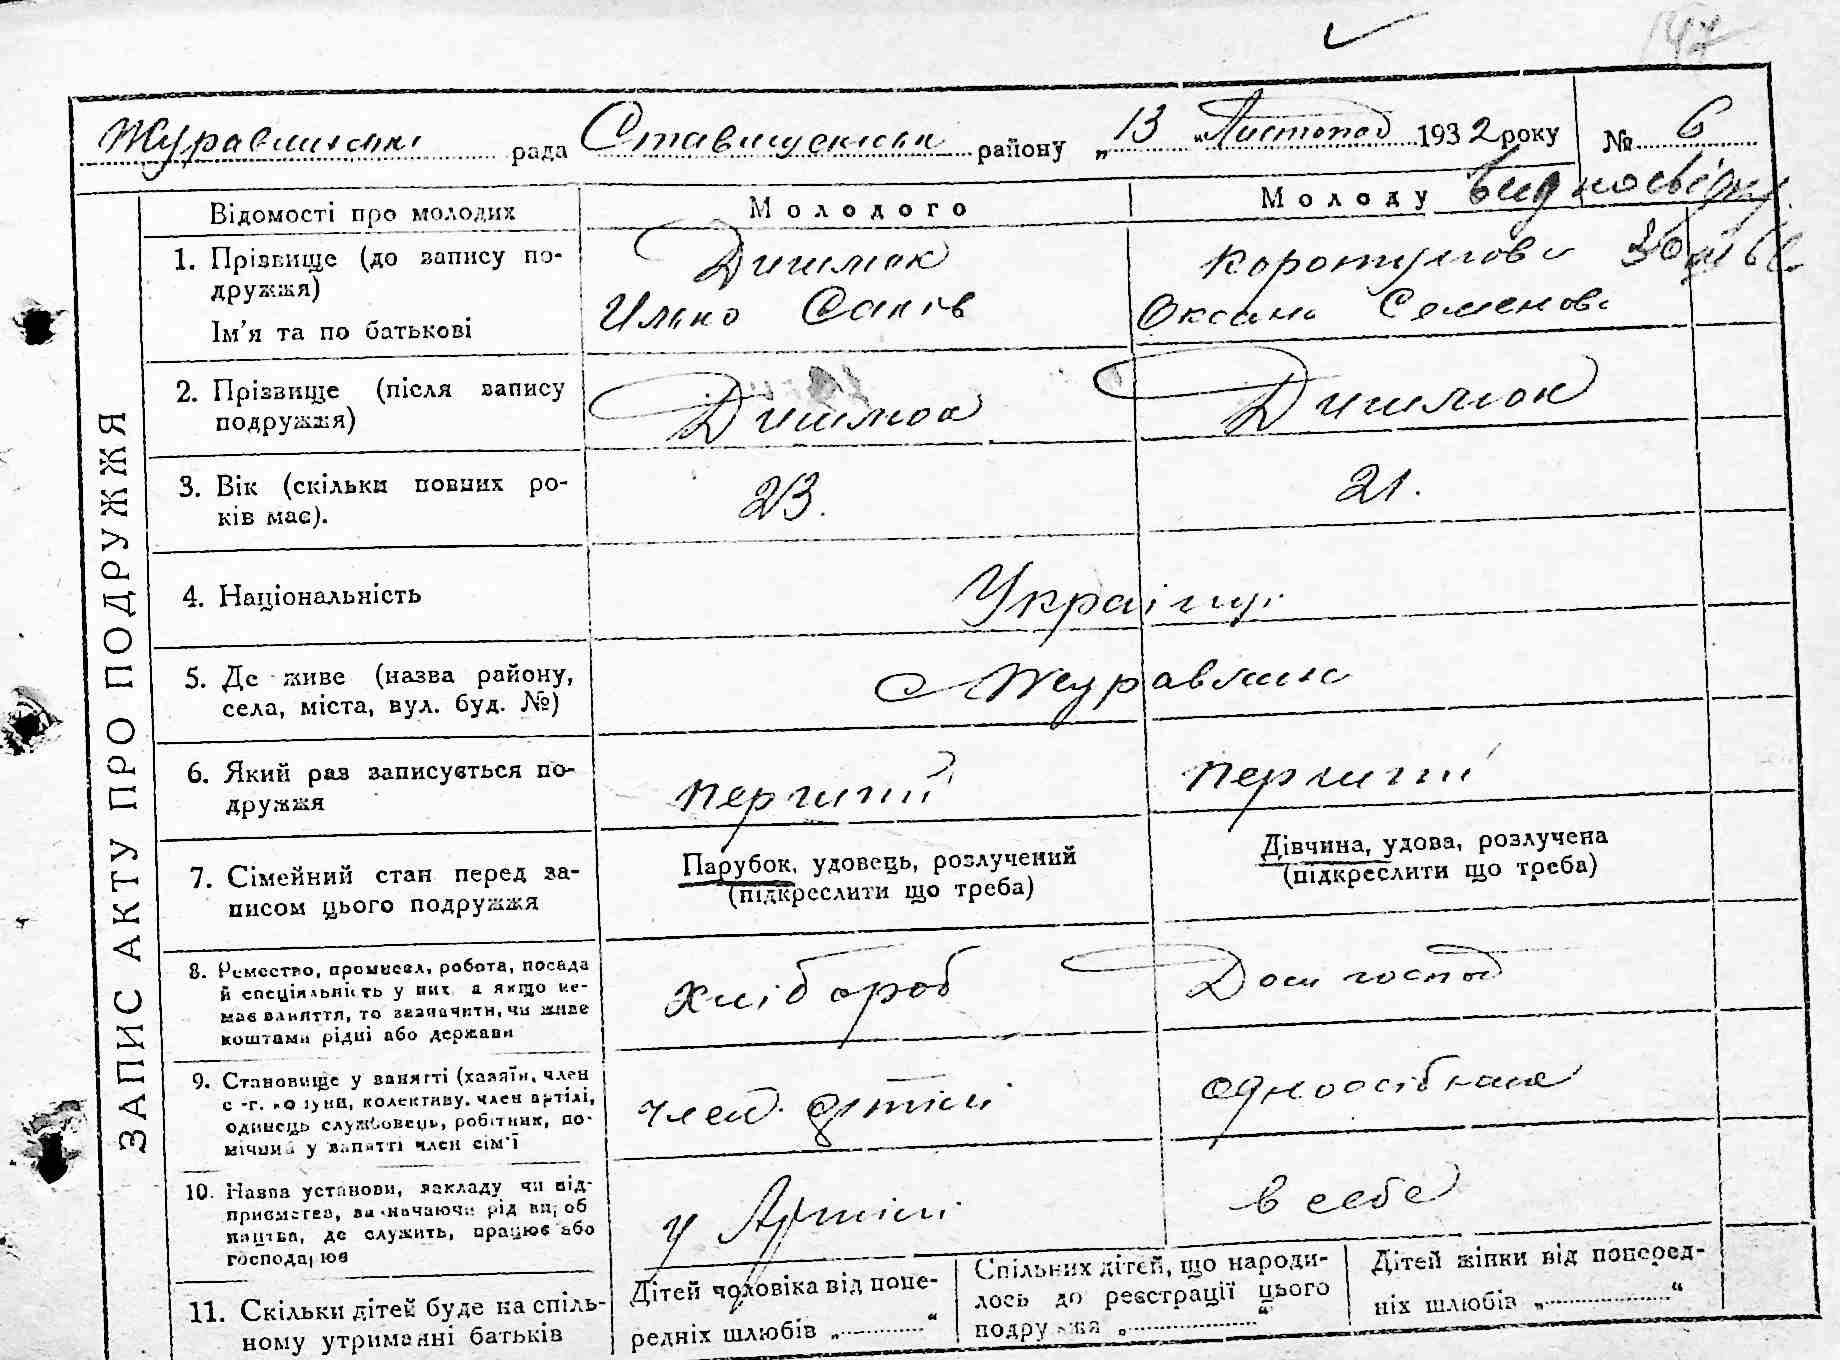 147
Журавлинські рада Ставищенськ району „13 „Листопад 1932 року № 6
Відомості про молодих Молодого Молоду
1. Прізвище (до запису по- Дишлюк
дружжя)
Ім'я та по батькові Илько Саків Оксана Семенова
2. Прізвище (після запису Дишлюк Дишлюк
подружжя)
3. Вік (скільки повних ро- 23. 21.
ків має).
4. Національність Українці
5. Де живе (назва району, с Журавлині
села, міста, вул. буд. №)
6. Який раз записується по- перший перший
дружжя
7. Сімейний стан перед за- Парубок, удовець, розлучений Дівчина, удова, розлучена
писом цього подружжя (підкреслити що треба) (підкреслити що треба)
8. Ремество, промисел, робота, посада хлібороб Дом господ
й спеціяльність у них, а якщо не-
має заняття, то зазначити, чи живе
коштами рідні або держави
9. Становище у занятті (хазяїн, член член артілі одноосібная
с.-г. комуни, колективу, член артілі,
одинець службовець, робітник, по-
мічний у занятті член сім'ї
10. Назва установи, закладу чи під- у Артілі в себе
приємства, зазначаючи рід вироб
ництва, де служить, працює або
господарює
11. Скільки дітей буде на спіль-
ному утриманні батьків
Дітей чоловіка від попе-
редніх шлюбів „ “
Спільних дітей, що народи-
лось до реєстрації цього
подружжя „ “
Дітей жінки від поперед-
ніх шлюбів „ “
ЗАПИС АКТУ ПРО ПОДРУЖЖЯ